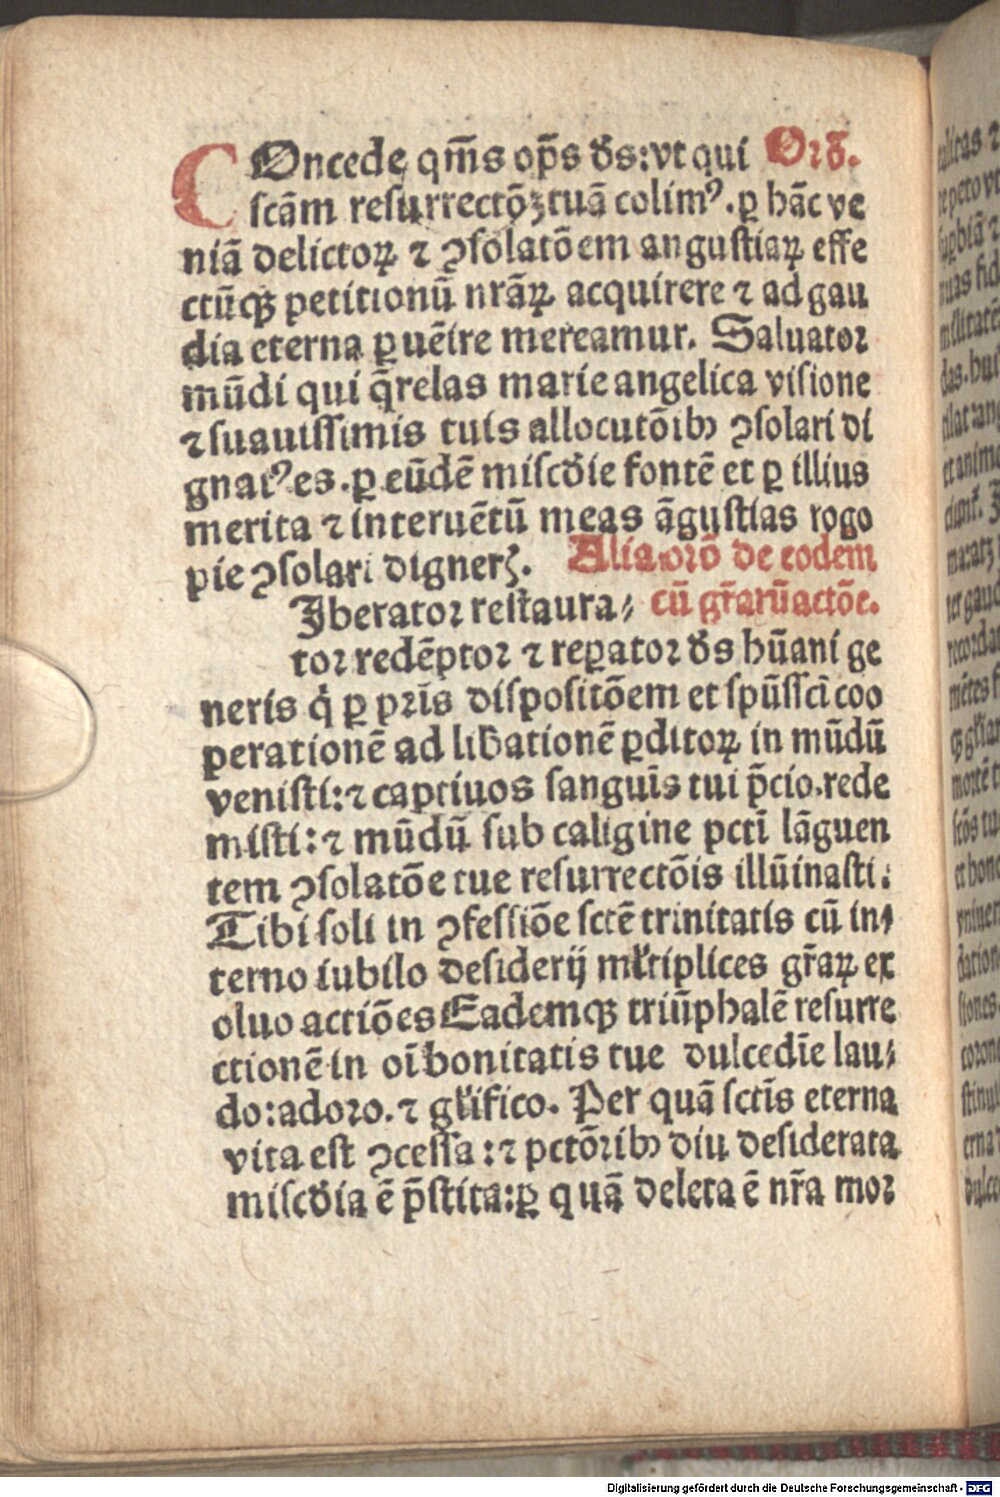 COncede qm̄s op̄s ds̄: vt qui Orō.
scām resurrectōꝫ tuā colimꝰ. ꝑ hāc ve
niā delictoꝝ ⁊ ꝯsolatōem angustiaꝝ effe
ctūqꝫ petitionū nrāꝝ acquirere ⁊ ad gau
dia eterna ꝑuēire mereamur. Saluator
mūdi qui q̄relas marie angelica visione
⁊ suauissimis tuis allocutōibꝫ ꝯsolari di
gnatꝰ es. ꝑ eūdē misc̄die fontē et ꝑ illius
merita ⁊ interuētū meas āgustias rogo
pie ꝯsolari digner̄. Alia orō de eodem
Iberator restaura⸗ cū gr̄aruactōe.
tor redēptor ⁊ reꝑator ds̄ hūani ge
neris q̇ ꝑ pr̄is dispositōem et spūssci coo
perationē ad lib̄ationē ꝑditoꝝ in mūdū
venisti: ⁊ captiuos sanguīs tui p̄cio. rede
misti: ⁊ mūdū sub caligine pcti lāguen
tem ꝯsolatōe tue resurrectōis illūinasti.
Tibi soli in ꝯfessiōe sctē trinitatis cū in⸗
terno iubilo desiderij ml̄tiplices gr̄aꝝ ex
oluo actiōes Eademqꝫ triūphalē resurre
ctionē in oī bonitatis tue dulcedīe lau⸗
do: adoro. ⁊ gl̄ifico. Per quā sctīs eterna
vita est ꝯcessa: ⁊ pctōribꝫ diu desiderata
misc̄dia ē p̄stita: ꝑ quā deleta ē nr̄a mor
Digitalisierung gefördert durch die Deutsche Forschungsgemeinschaft - DFG